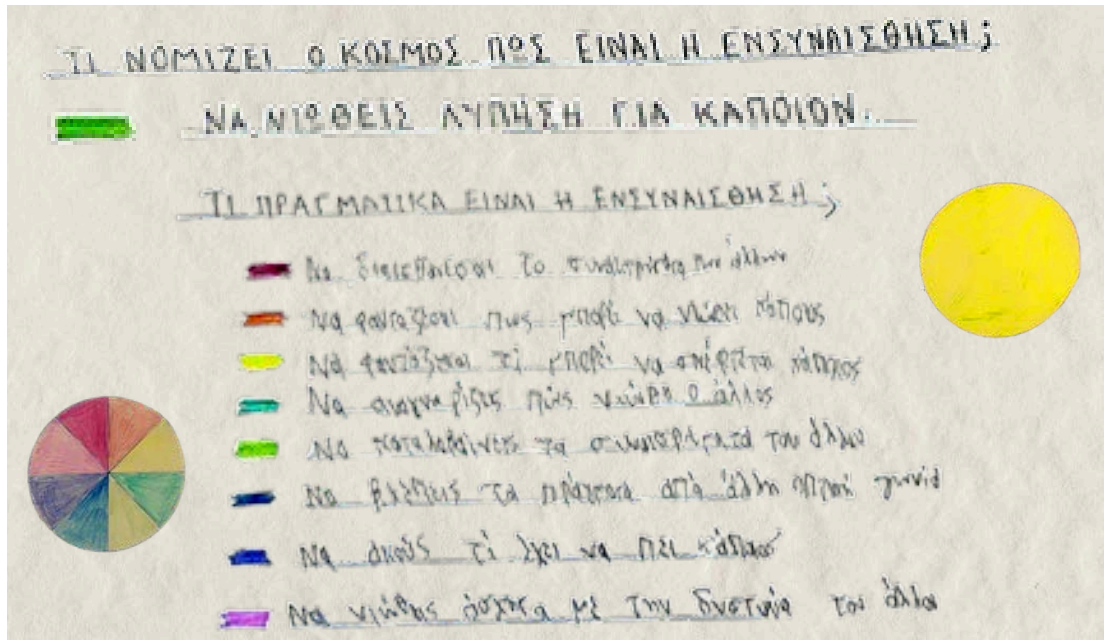 ΤΙ ΝΟΜΙΖΕΙ Ο ΚΟΣΜΟΣ ΠΩΣ ΕΙΝΑΙ Η ΕΝΣΥΝΑΙΣΘΗΣΗ;
ΝΑ ΝΙΩΘΕΙΣ ΛΥΠΗΣΗ ΓΙΑ ΚΑΠΟΙΟΝ.
ΤΙ ΠΡΑΓΜΑΤΙΚΑ ΕΙΝΑΙ Η ΕΝΣΥΝΑΙΣΘΗΣΗ;
Να το των άλλων
Να φαντάζεσαι πως μπορεί να νιώθει κάποιος
Να φαντάζεσαι τί μπορεί να σκέφτεται κάποιος
Να αναγνωρίζεις πώς νιώθει ο άλλος
Να καταλαβαίνεις τα του άλλου
Να βλέπεις τα πράγματα από άλλη οπτική γωνία
Να ακούς τί έχει να πει κάποιος
Να νιώθεις άσχημα με την δυστυχία του άλλου